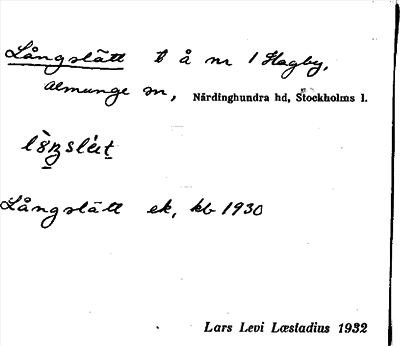 Långslätt t å nr 1 Hagby,
Almunge sn, Närdinghundra hd, Stockholms l.
Långslätt ek, kb 1930
Lars Levi Læstadius 1932